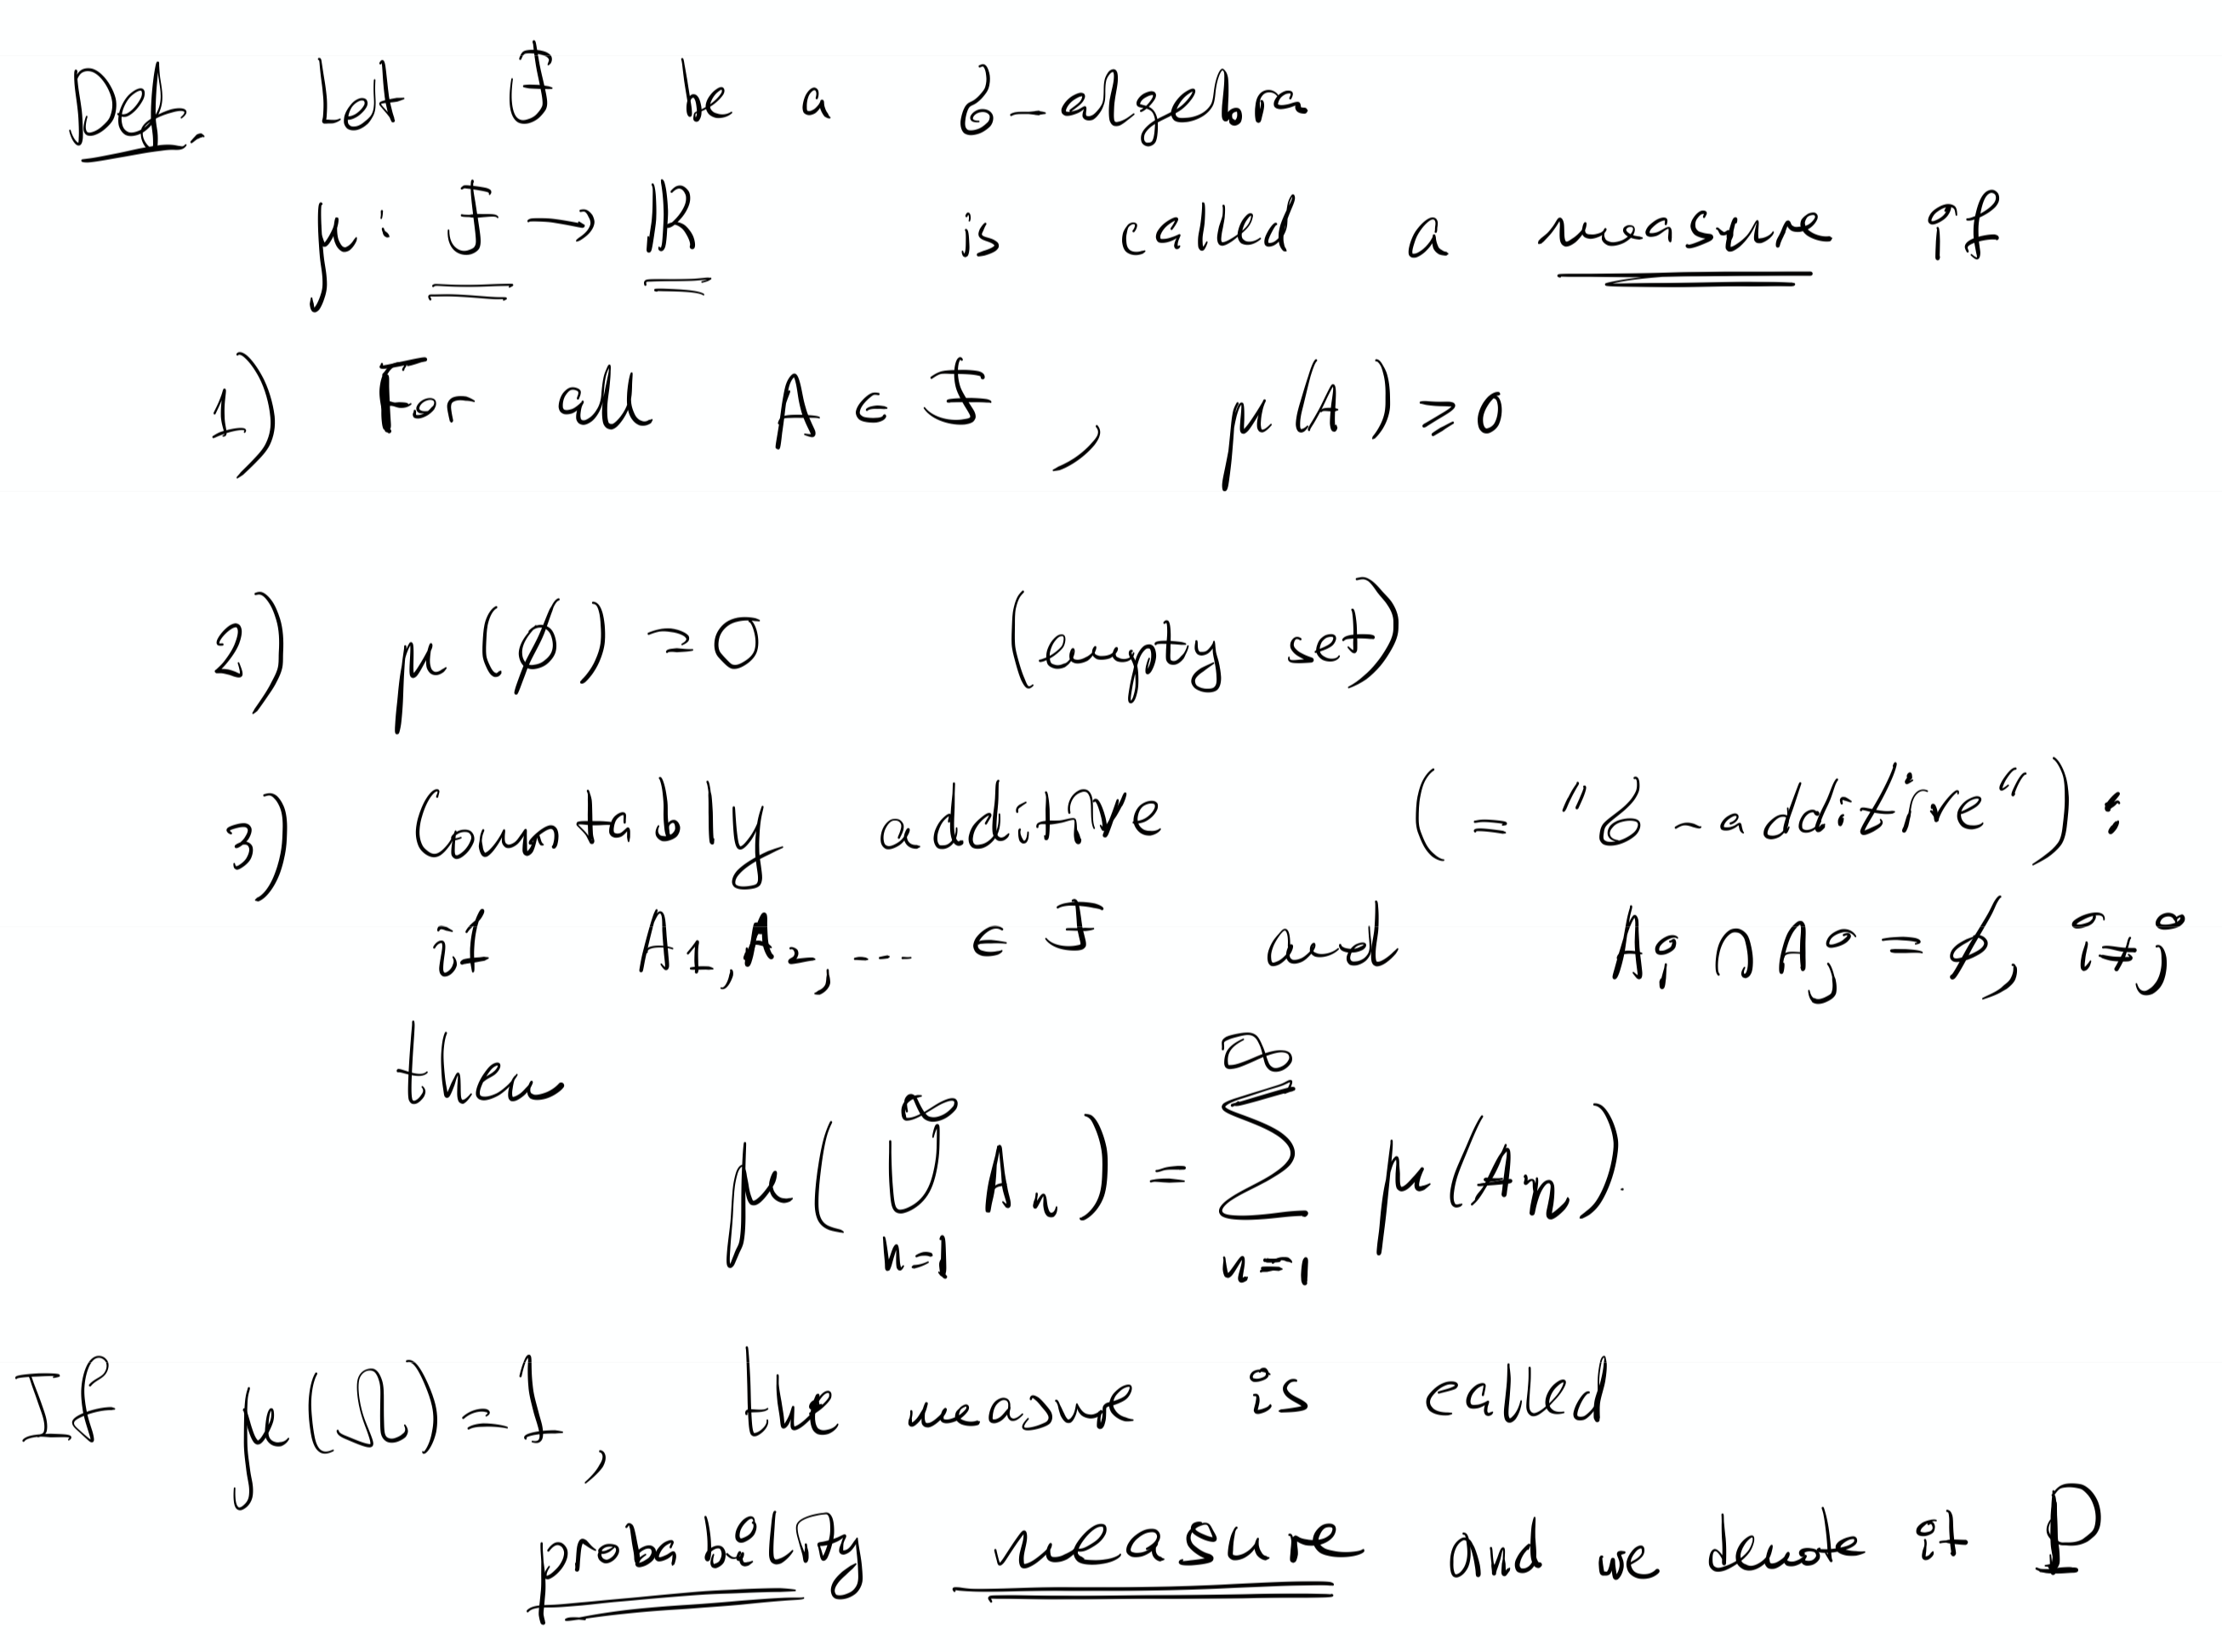 Def. let ℱ be a σ-algebra
μ: ℱ → ℝ is called a measure if
1) For all A ∈ ℱ, μ(A) ≥ 0
2) μ(∅) = 0 (empty set)
3) Countably additive (= "σ-additive"):
if A₁, A₂, ... ∈ ℱ and Aᵢ ∩ Aⱼ = ∅, i ≠ j
then
μ(⋃_{n=1}^{∞} Aₙ) = ∑_{n=1}^{∞} μ(Aₙ).
If μ(Ω) = 1, the measure is called
probability measure and we denote it P